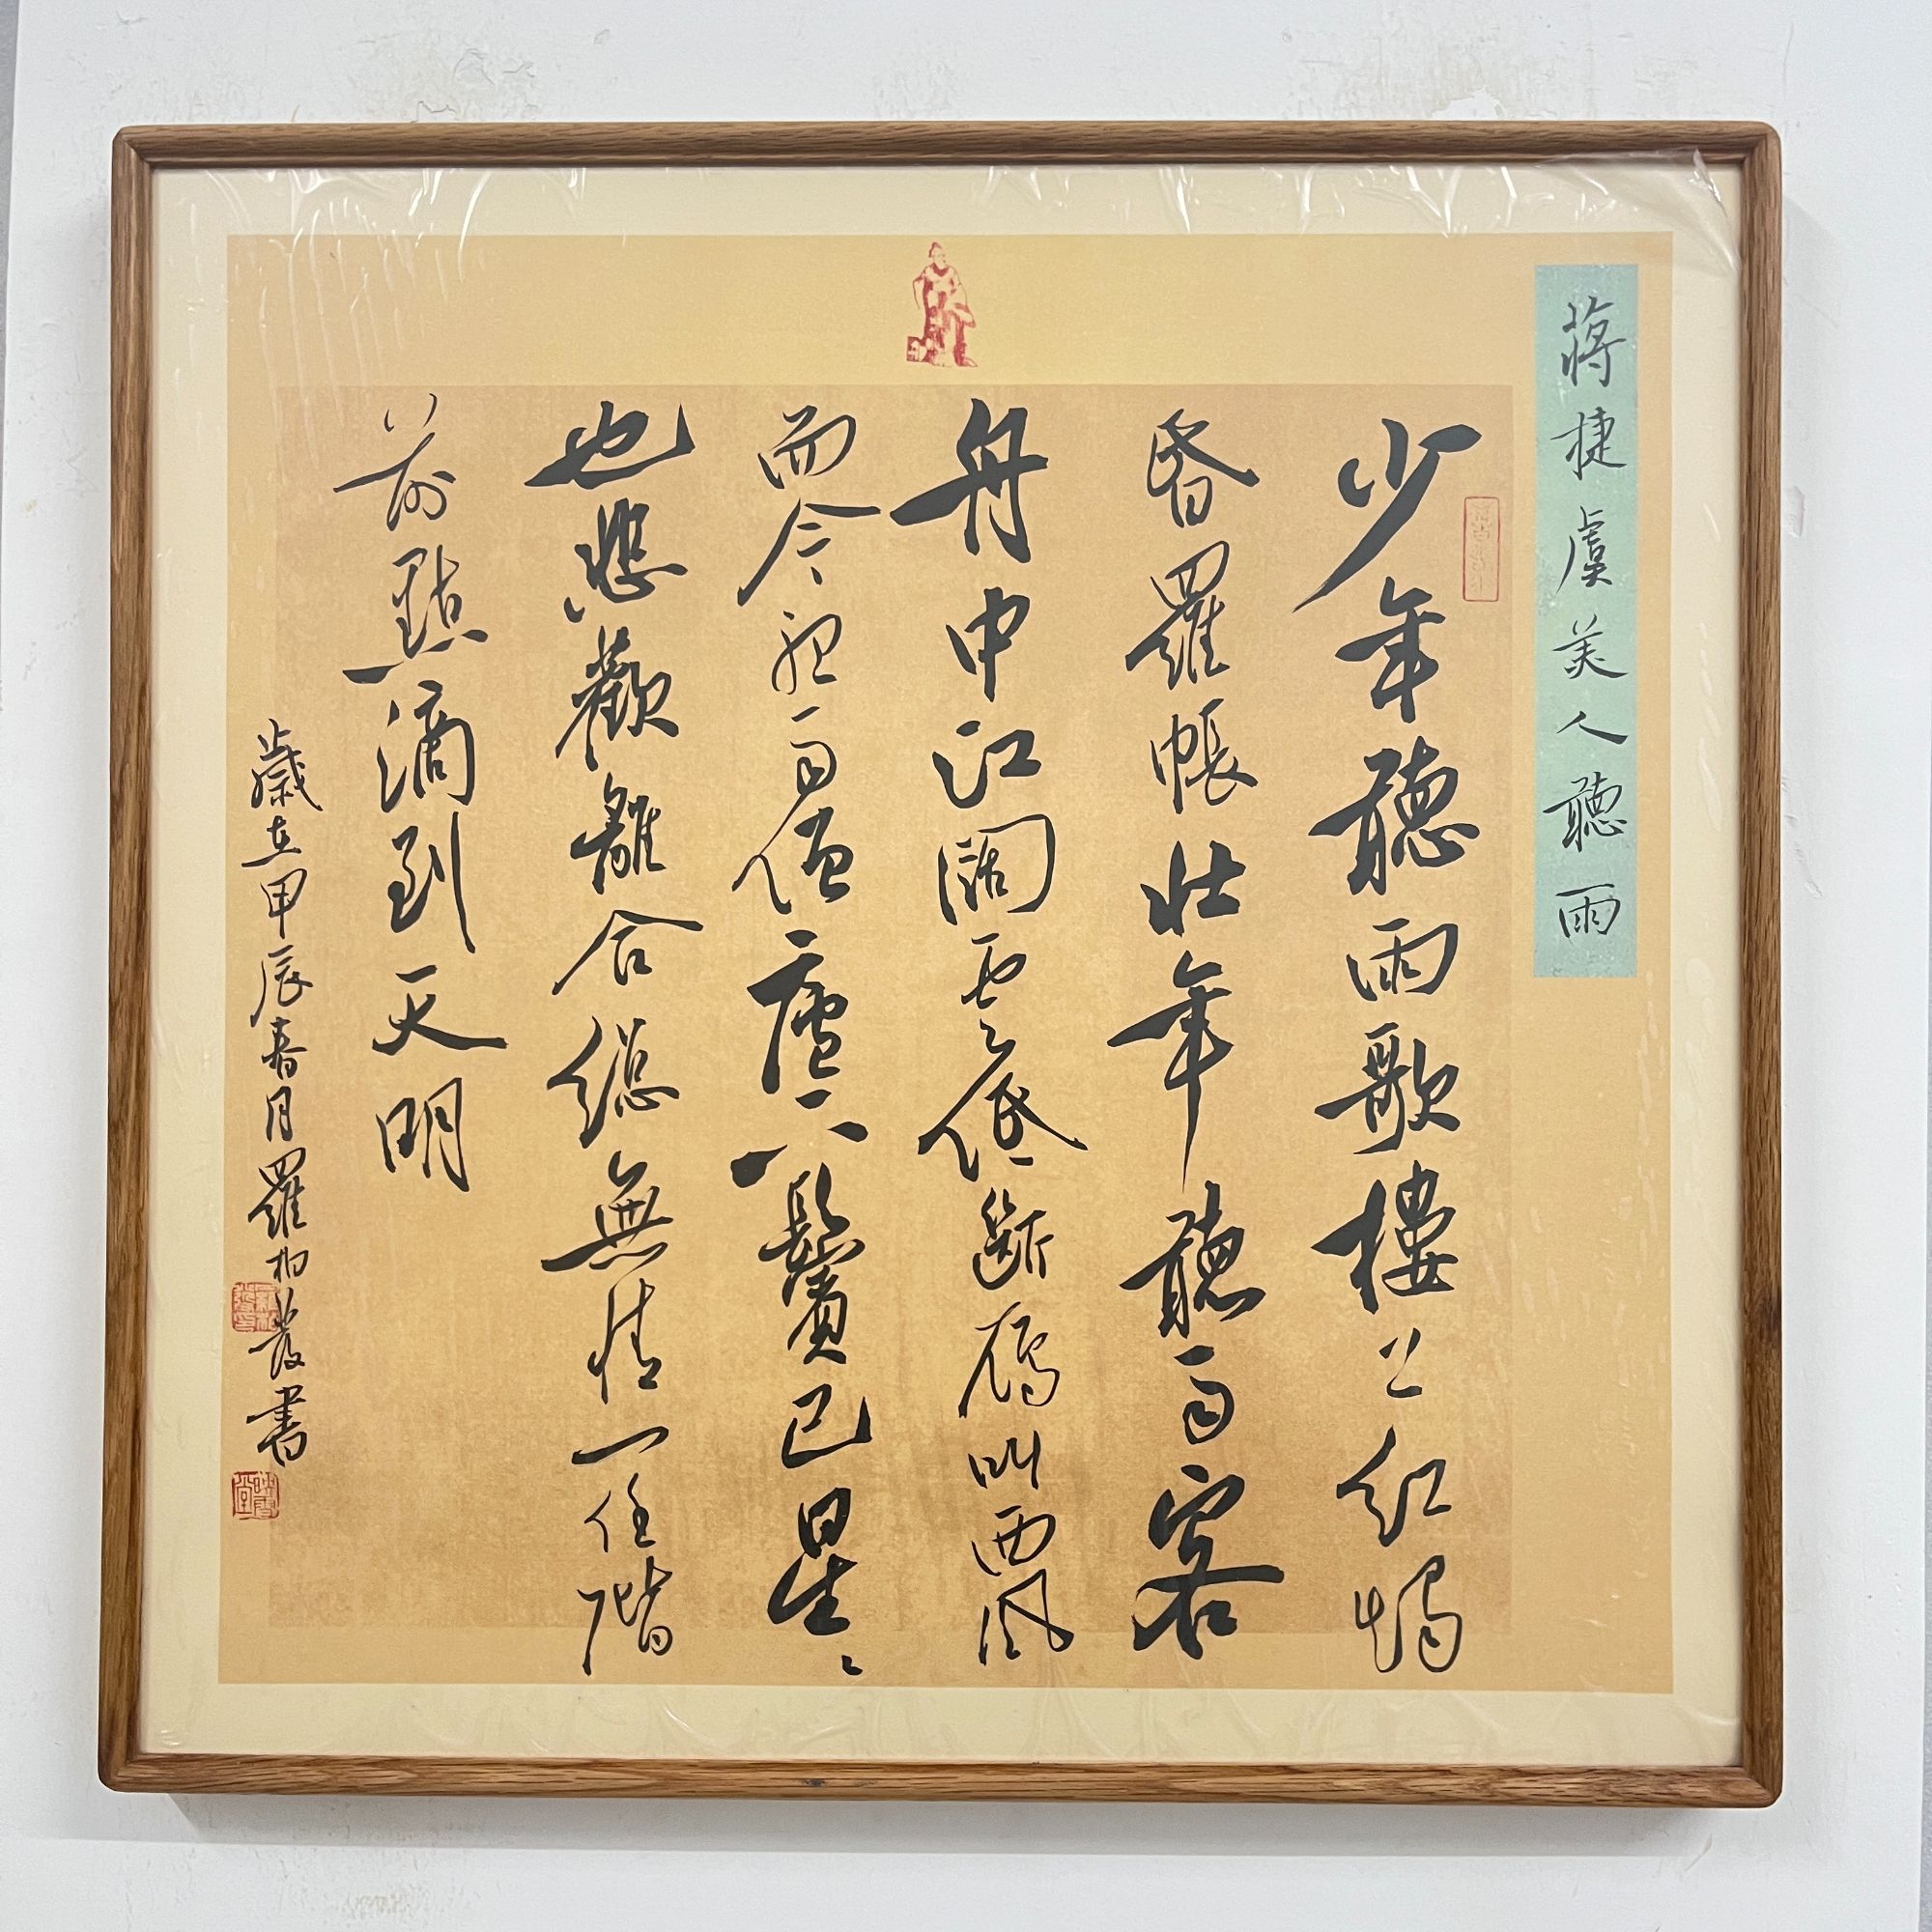 蔣捷虞美人聽雨
少年聽雨歌樓上紅燭
昏羅帳壯年聽雨客
舟中江闊雲低斷鴈叫西風
而今聽雨僧廬下鬢已星〻
也悲歡離合總無情一任階
前點滴到天明
歲在甲辰春月羅柏發書
映雪堂